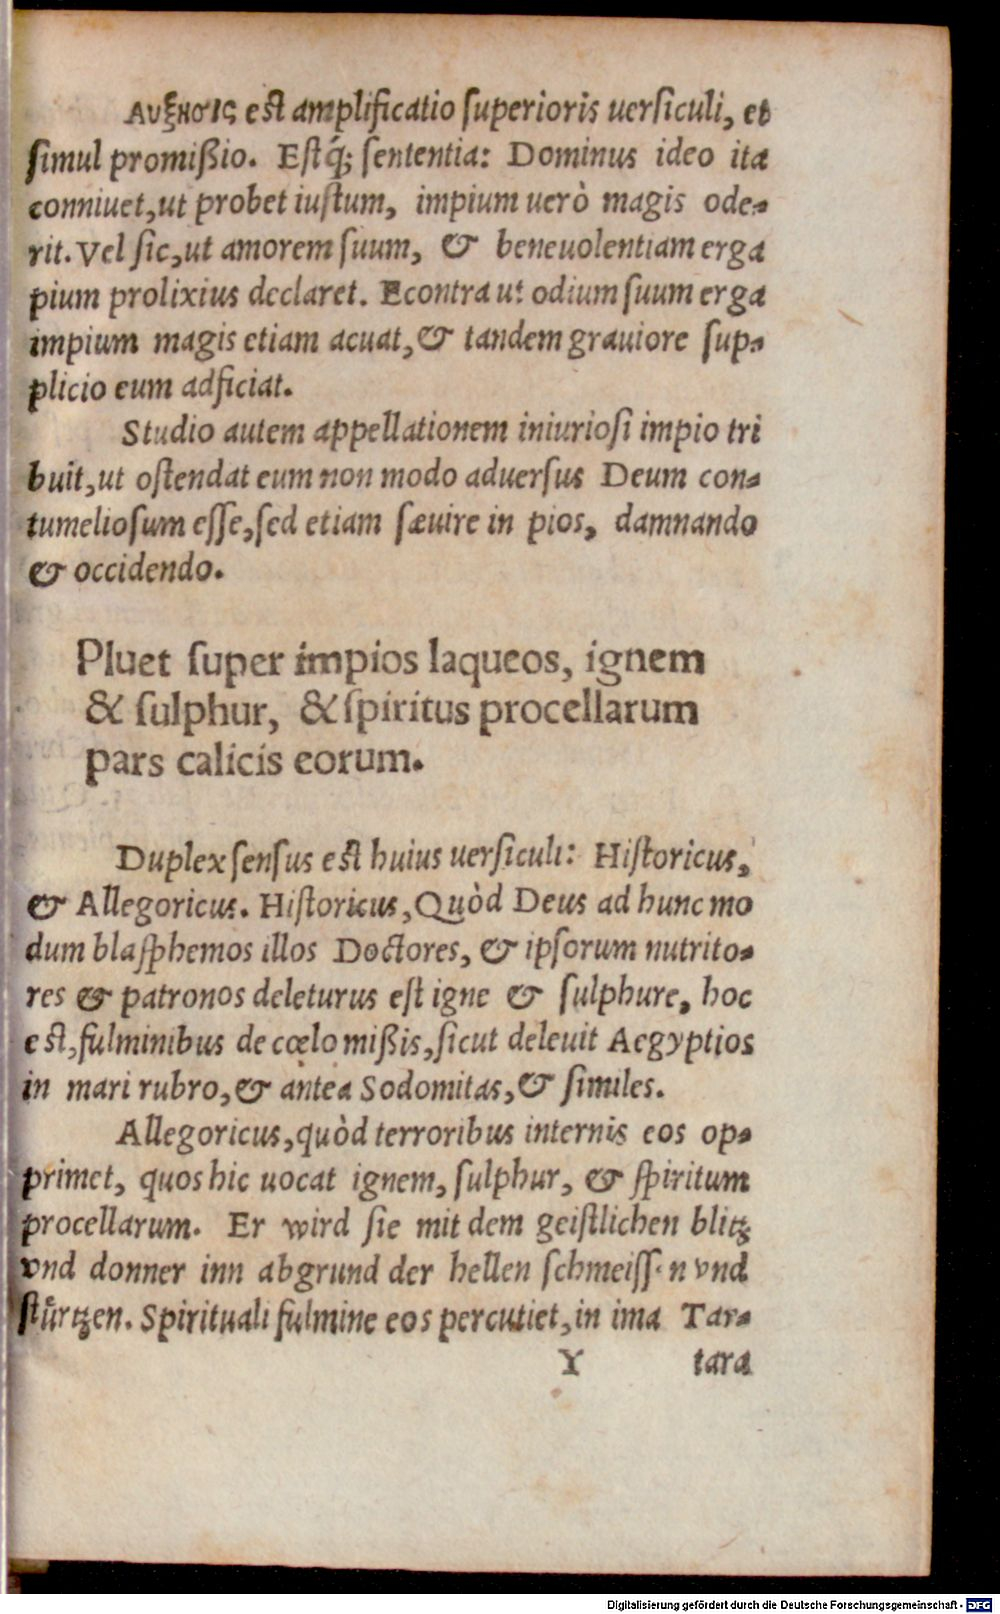 Αυξησις est amplificatio ſuperioris uerſiculi, et
ſimul promißio. Estq́; ſententia: Dominus ideo ita
conniuet, ut probet iuſtum, impium uerò magis ode-
rit. Vel ſic, ut amorem ſuum, & beneuolentiam erga
pium prolixius declaret. Econtra ut odium ſuum erga
impium magis etiam acuat, & tandem grauiore ſup-
plicio eum adficiat.
Studio autem appellationem iniurioſi impio tri
buit, ut oſtendat eum non modo aduerſus Deum con-
tumelioſum eſſe, ſed etiam ſæuire in pios, damnando
& occidendo.
Pluet ſuper impios laqueos, ignem
& ſulphur, & ſpiritus procellarum
pars calicis eorum.
Duplex ſenſus eſt huius uerſiculi: Hiſtoricus,
& Allegoricus. Hiſtoricus, Quòd Deus ad hunc mo
dum blaſphemos illos Doctores, & ipſorum nutrito-
res & patronos deleturus eſt igne & ſulphure, hoc
eſt, fulminibus de cœlo mißis, ſicut deleuit Aegyptios
in mari rubro, & antea Sodomitas, & ſimiles.
Allegoricus, quòd terroribus internis eos op-
primet, quos hic uocat ignem, ſulphur, & ſpiritum
procellarum. Er wird ſie mit dem geiſtlichen blitz
vnd donner inn abgrund der hellen ſchmeiſſen vnd
ſtuͤrtzen. Spirituali fulmine eos percutiet, in ima Tar-
Y tara
Digitalisierung gefördert durch die Deutsche Forschungsgemeinschaft - DFG